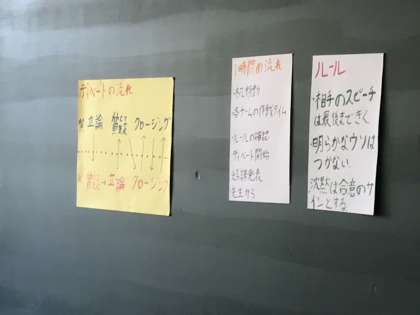 ディベートの流れ
立論
クロージング
立論
クロージング
1時間の流れ
・各チームの作戦タイム
・ルールの確認
ディベート開始
結果発表
先生から
ルール
・相手のスピーチ
は最後まできく
・明らかなウソは
つかない
沈黙は合意のサ
インとする